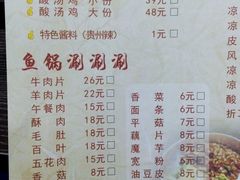 酸汤鸡 小份 39元□
酸汤鸡 大份 48元□
特色酱料（贵州辣） 1元□
鱼锅涮涮涮
牛肉片 26元□
羊肉片 22元□
午餐肉 15元□
酥肉 18元□
毛肚 18元□
百叶 18元□
五花肉 15元□
香菜 6元□
面条 6元□
平菇 7元□
藕片 8元□
魔芋 8元□
宽粉 8元□
油豆皮 8元□
凉
凉
皮
风
凉
凉
酸
折